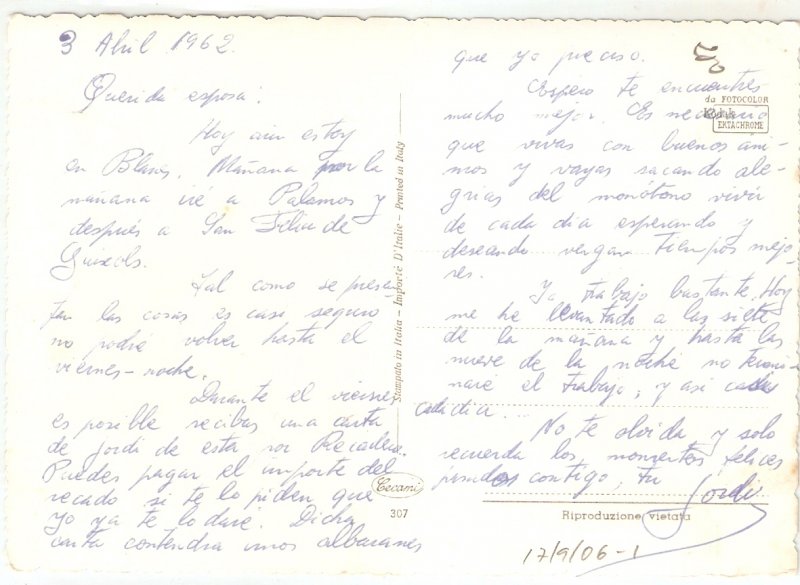 3 Abril 1962.
Querida esposa:
Hoy aun estoy
en Blanes. Mañana por la
mañana iré a Palamos y
después a San Feliu de
Guixols.
Tal como se presen-
tan las cosas es casi seguro
no podré volver hasta el
viernes-noche.
Durante el viernes
es posible recibas una carta
de Jordi de esta por
Puedes pagar el importe del
recado si te lo piden que
yo ya te lo daré. Dicha
carta contendra unos albaranes
que yo preciso.
Espero te encuentres
mucho mejor. Es necesario
que vivas con buenos áni-
mos y vayas sacando ale-
grias del monótono vivir
de cada día esperando y
deseando vengan tiempos mejo-
res.
Yo trabajo bastante. Hoy
me he levantado a las siete
de la mañana y hasta las
nueve de la noche no termi-
naré el trabajo, y así cada
cada día...
No te olvida y solo
recuerda los momentos felices
pasados contigo, tu
Jordi
Stampato in Italia - Importé D'Italie - Printed in Italy
da FOTOCOLOR
Kodak
EKTACHROME
Cecami
307
Riproduzione vietata
17/9/06-1